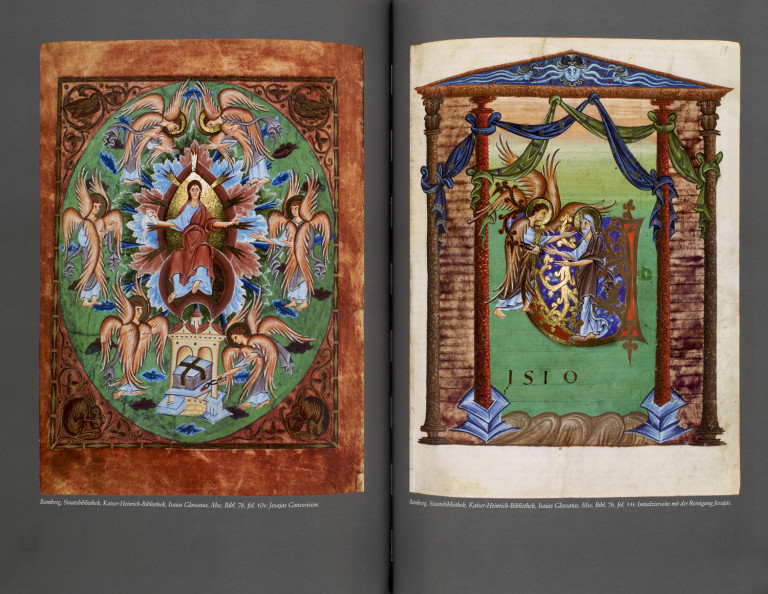 Bamberg, Staatsbibliothek, Kaiser-Heinrich-Bibliothek, Isaias Glossatus, Msc. Bibl. 76, fol. 10v: Jesajas Gottesvision.
ISIO
Bamberg, Staatsbibliothek, Kaiser-Heinrich-Bibliothek, Isaias Glossatus, Msc. Bibl. 76, fol. 11r: Initialzierseite mit der Reinigung Jesajas.